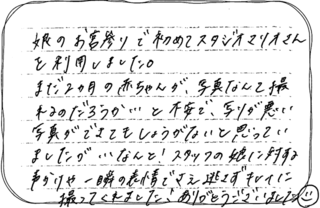 娘のお宮参りで初めてスタジオマリオさん
を利用しました。
まだ2ヵ月の赤ちゃんが、写真なんて撮
れるのだろうか…と不安で、写りが悪い
写真ができてもしょうがないと思ってい
ましたが…なんと!スタッフの娘に対する
声かけや一瞬の表情でさえ逃さずキレイに
撮ってくれました!ありがとうございました